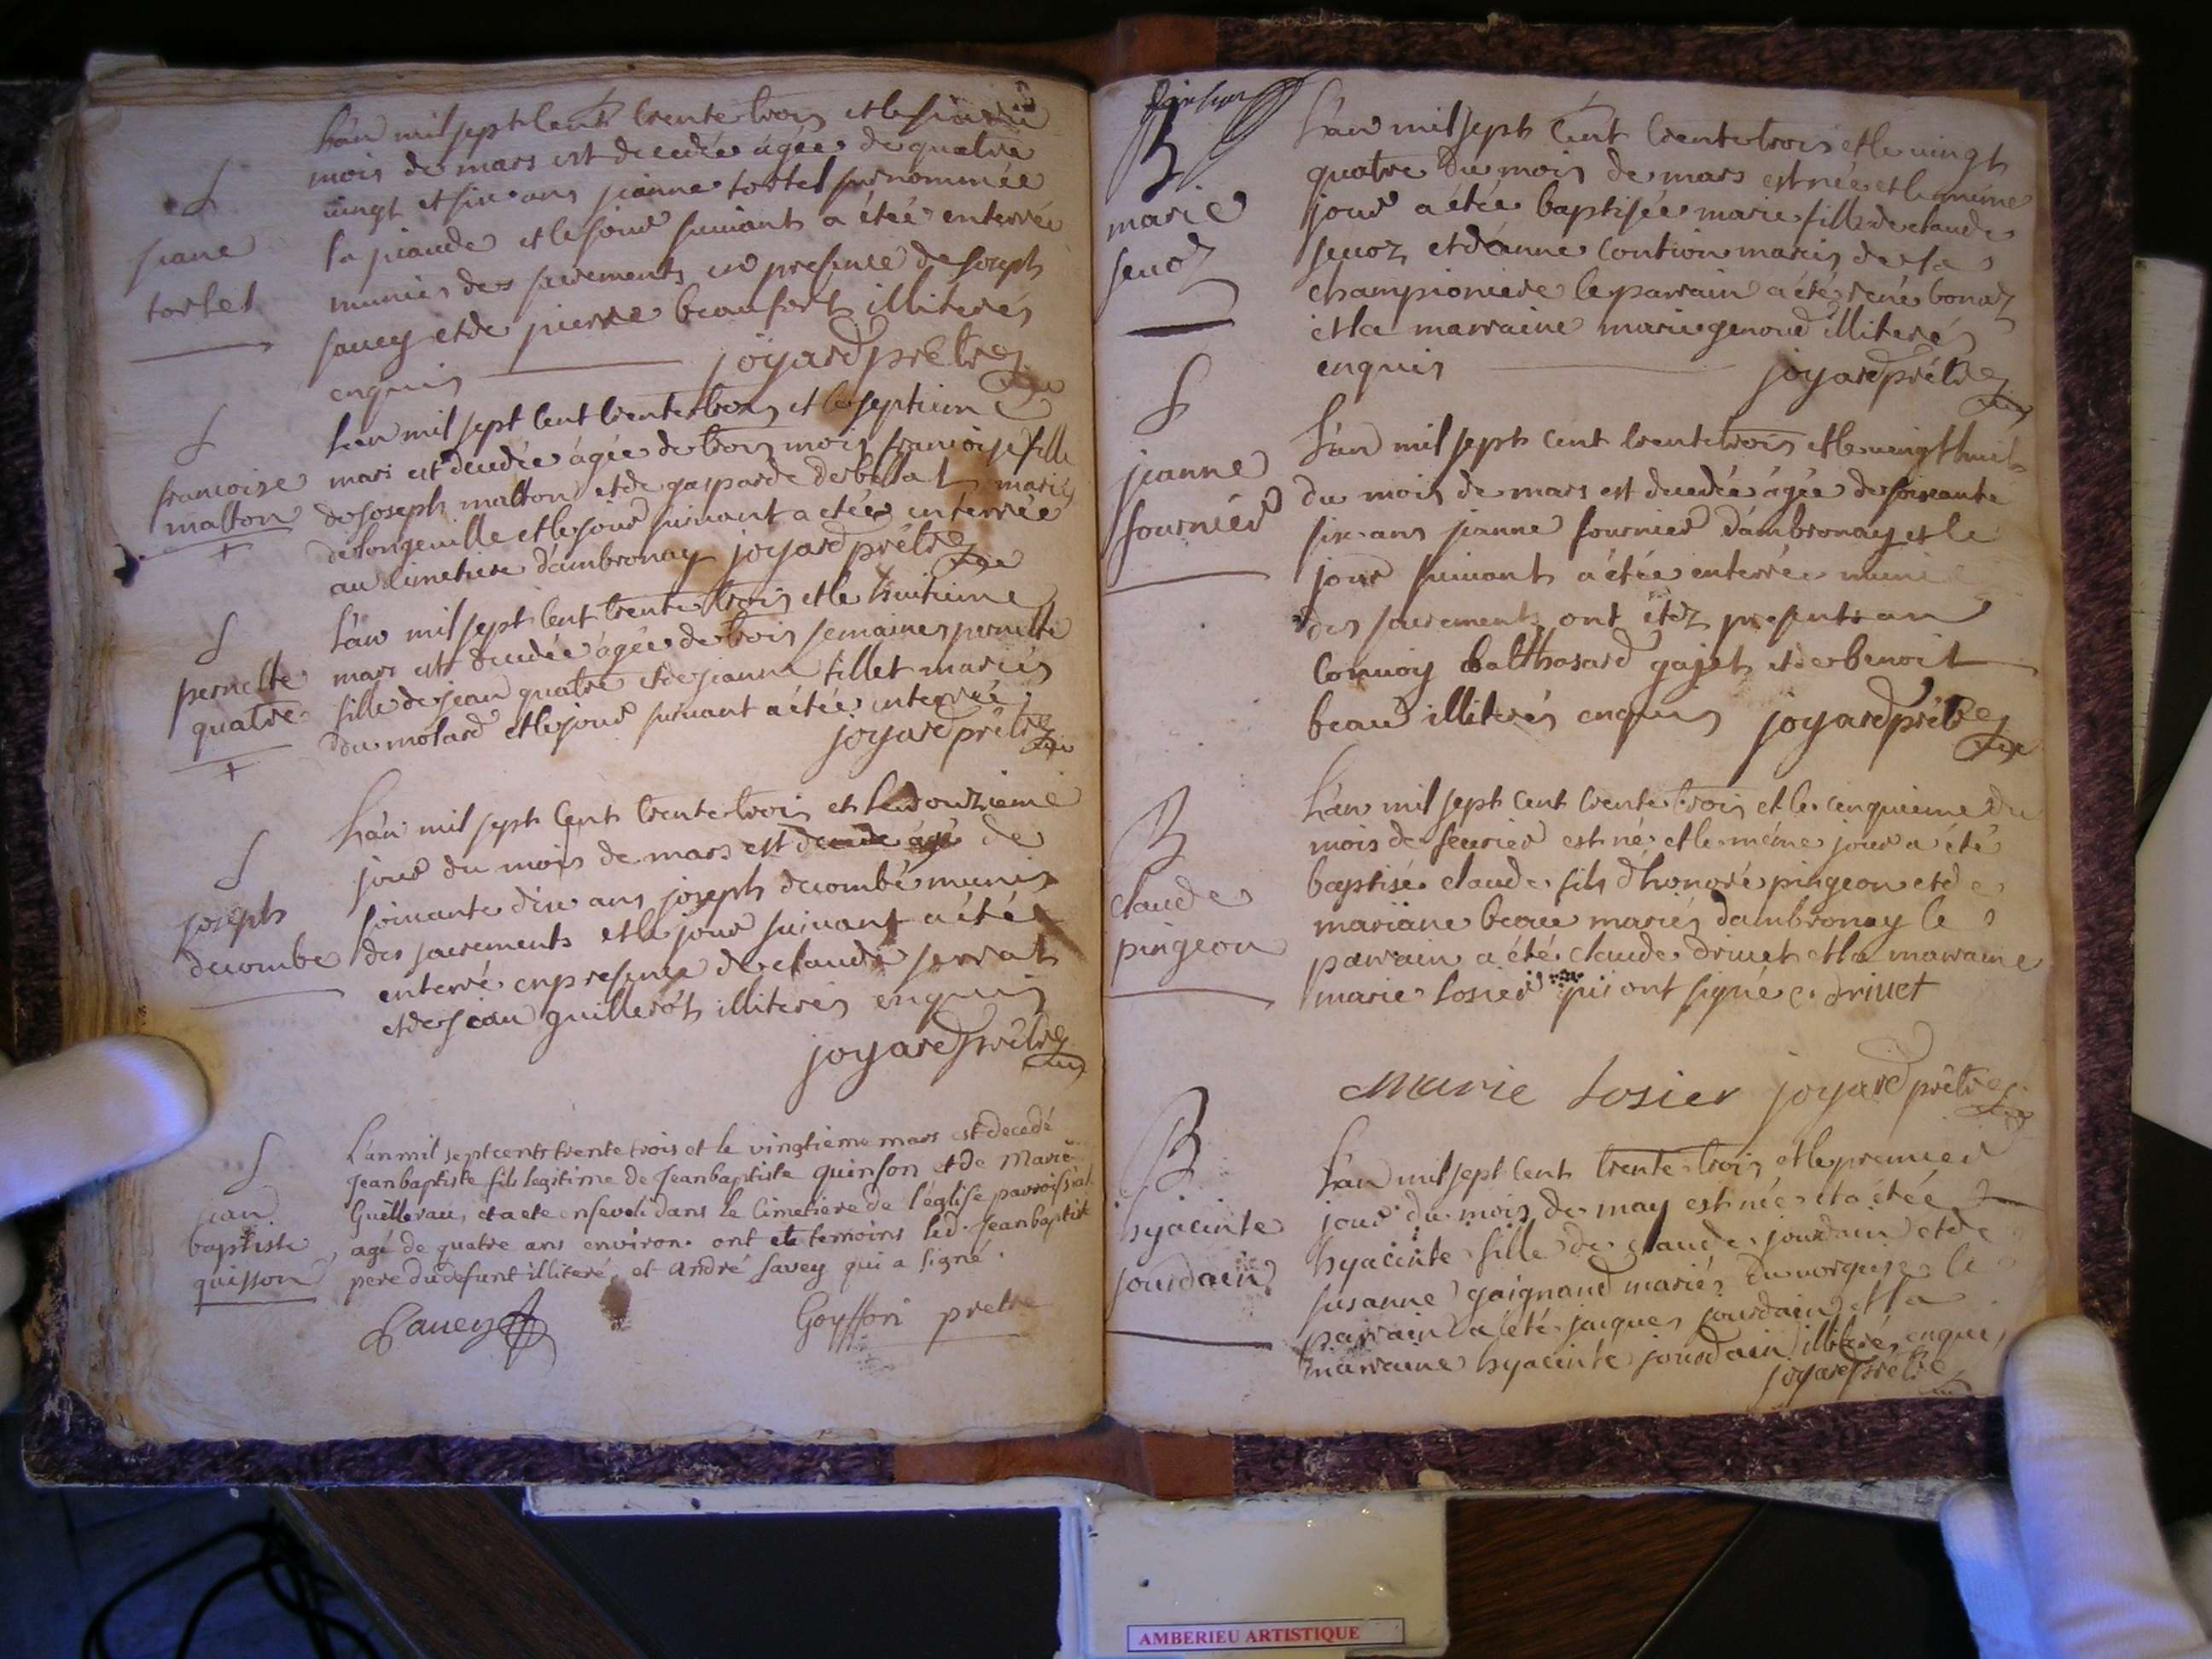 S
jeane
tortel
L'an mil sept cent trente trois et le
mois de mars est decedée âgée de quatre
vingt et six ans jeanne tortel surnommée
la jeaude et le jour suivant a étéé enterrée
munie des sacrements en presence de joseph
savey et de pierre beaufort illiterés
enquis joyard prêtre
S
francoise
malton
L'an mil sept cent trente trois et le septieme
mars est decedée âgée de trois mois francoise fille
de joseph malton et de gasparde debellat mariés
de longeville et le jour suivant a étée enterrée
au cimetiere d'ambronay joyard prêtre
S
pernette
quatre
L'an mil sept cent trente trois et le huitieme
mars est decedée âgée de trois semaines pernette
fille de jean quatre et de jeanne tillet mariés
du molard et le jour suivant a étée enterrée
joyard prêtre
S
joseph
decombe
L'an mil sept cent trente trois et le douzieme
jour du mois de mars est decede agé de
soixante dix ans joseph decombe munis
des sacrements et le jour suivant a été
enterré en presence de claude serrat
et de jean guillerot illiterés enquis
joyard prêtre
S
jean
baptiste
quisson
L'an mil sept cents trente trois et le vingtieme mars est decedé
Jean baptiste fils legitime de Jean baptiste quinson et de Marie
Guillerau, et a eté enseveli dans le Cimetiere de l'église parroissial
agé de quatre ans environ. ont eté temoins led. Jean baptiste
pere du defunt illiteré, et André Savey qui a signé.
Savey Goyffon prêtre
B
marie
jeuoz
L'an mil sept cent trente trois et le vingt
quatre du mois de mars est née et le même
jour a étée baptisée marie fille de claude
jeuoz et d'anne contion mariés de la
championiere le parrain a été rené bonaz
et la marraine marie genoud illiteré
enquis joyard prêtre
S
jeanne
fournier
L'an mil sept cent trente trois et le vingt huit
du mois de mars est decedée âgée de soixante
six ans jeanne fournier d'ambronay et le
jour suivant a étée enterrée munie
des sacrements ont étéz presents au
convoy balthasard gajet et de benoit
beau illiterés enquis joyard prêtre
B
claude
pingeon
L'an mil sept cent trente trois et le cinquieme du
mois de feurier est né et le même jour a été
baptisé claude fils d'honoré pingeon et de
mariane beau mariés d'ambronay le
parrain a été claude driuet et la marraine
marie losier qui ont signé c. driuet
Marie Losier joyard prêtre
B
hyacinte
jourdain
L'an mil sept cent trente trois et le premier
jour du mois de may est née et a étée
hyacinte fille de claude jourdain et de
susanne gaignaud mariés du le
parrain a été jacques jourdain et la
marraine hyacinte jourdain illiterés enquis
joyard prêtre
AMBERIEU ARTISTIQUE